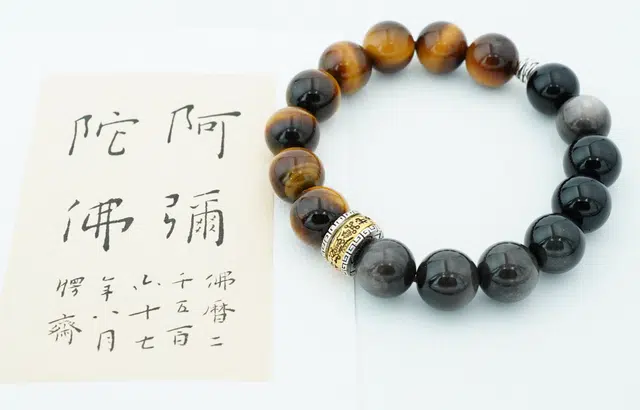 阿彌
陀佛
佛曆二
千五百
六十七
年八月
愕齋